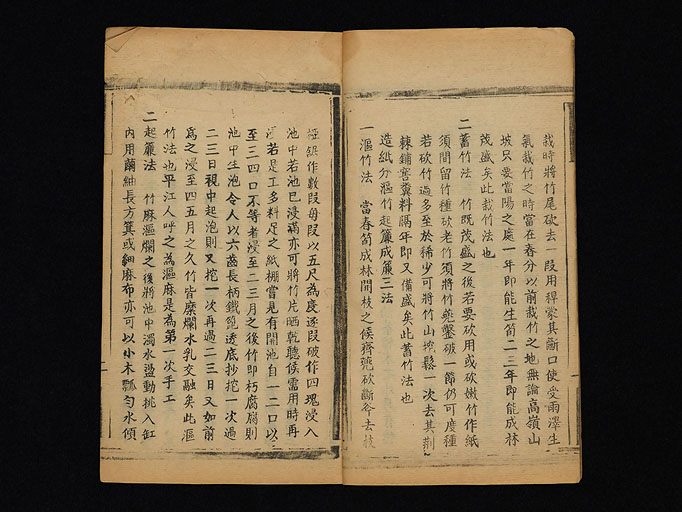 栽時將竹尾砍去一段用稈蒙其斷口使受雨澤生
氣栽竹之時當在春分以前栽竹之地無論高嶺山
坡只要當陽之處一年即能生筍二三年即能成林
茂盛矣此栽竹法也
二蓄竹法 竹既茂盛之後若要砍用或砍嫩竹作紙
須間留竹種砍老竹須將竹蔸鑿破一節仍可度種
若砍竹過多至於稀少可將竹山挖鬆一次去其荆
棘鋪窖糞料隔年即又備盛矣此蓄竹法也
造紙分漚竹起簾成簾三法
一漚竹法 當春筍成林開枝之候齊蔸砍斷令去枝
椏鋸作數段每段以五尺為度逐段破作四塊浸入
池中若池巳浸滿亦可將竹片晒乾聽候需用時再
浸若是工多料足之紙棚嘗見有開池自一二口以
至三四口不等者浸至二三月之後竹即朽腐腐則
池中生泡令人以六齒長柄鐵鈀透底抄挖一次過
二三日視中起泡則又挖一次再過二三日又如前
為之浸至四五月之久竹皆糜爛水乳交融矣此漚
竹法也平江人呼之為漚麻是為第一次手工
二起簾法 竹麻漚爛之後將池中濁水盪動挑入缸
內用繭紬長方箕或細麻布亦可以小木瓢勻水傾